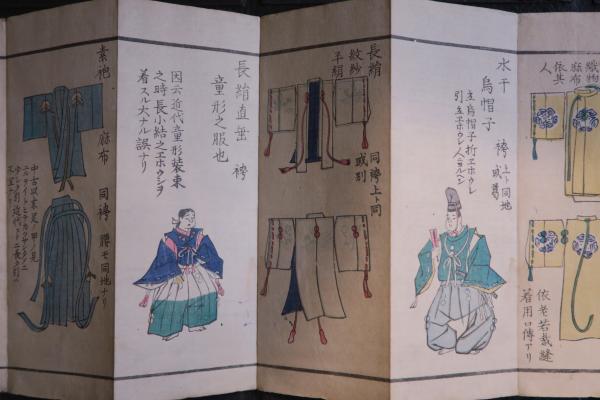 織物
麻布
依其
人
依老若裁縫
着用口傳アリ
水干
烏帽子
袴 上ト同地
或葛
立烏帽子折エホウシ
長絹
紋紗
平絹
同袴上ト同
或別
長絹直垂 袴
童形之服也
因云近代童形装束
之時長小結之エホウシヲ
着スル大ナル誤ナリ
素袍
麻布
同袴 腰モ同地ナリ